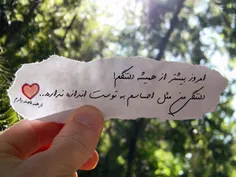 امروز بیشتر از همیشه دلتنگم!
دلتنگی من مثل احساسم به توست اندازه نداره...